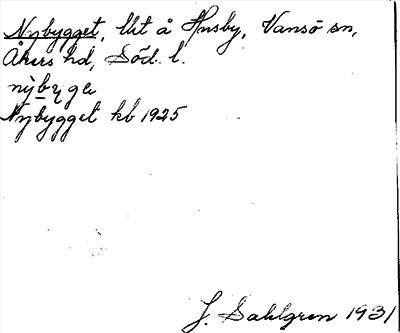 Nybygget, lht å Husby, Vansö sn,
Åkers hd, Söd. l.
Nybygget kb 1925
J. Sahlgren 1931